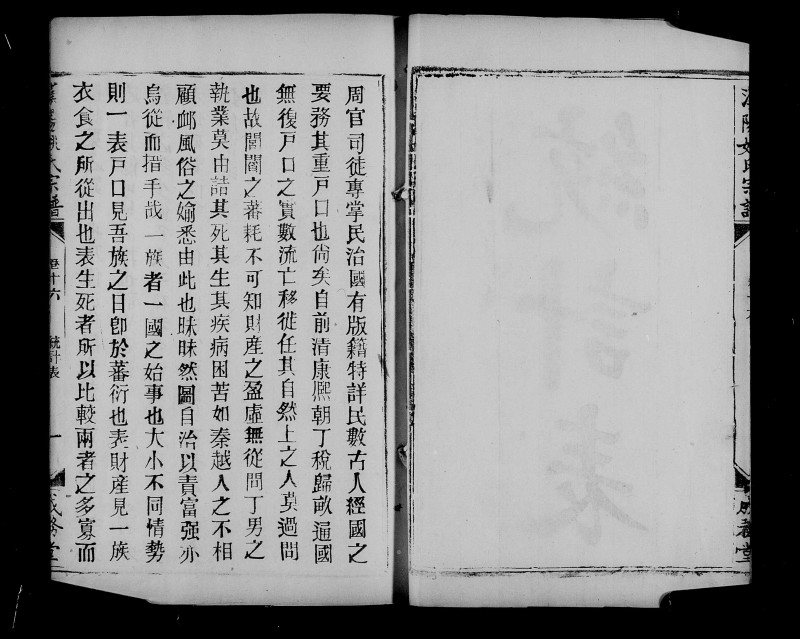 周官司徒專掌民治國有版籍特詳民數古人經國之
要務其重戸口也尙矣自前清康熈朝丁稅歸畝逼國
無復戸口之實數流亡移徙任其自然上之人莫過問
也故闾閻之蕃耗不可知財産之盈虛無從問丁男之
執業莫由詰其死其生其疾病困苦如秦越人之不相
顧卹風俗之媮悉由此也昧昧然圖自治以責富强亦
烏從而措手哉一族者一國之始事也大小不同情勢
則一表戸口見吾族之日卽於蕃衍也表財産見一族
衣食之所從出也表生死者所以比較兩者之多寡而
氏宗譜
卷十六
統計表
一
成務堂
氏宗譜
統計表